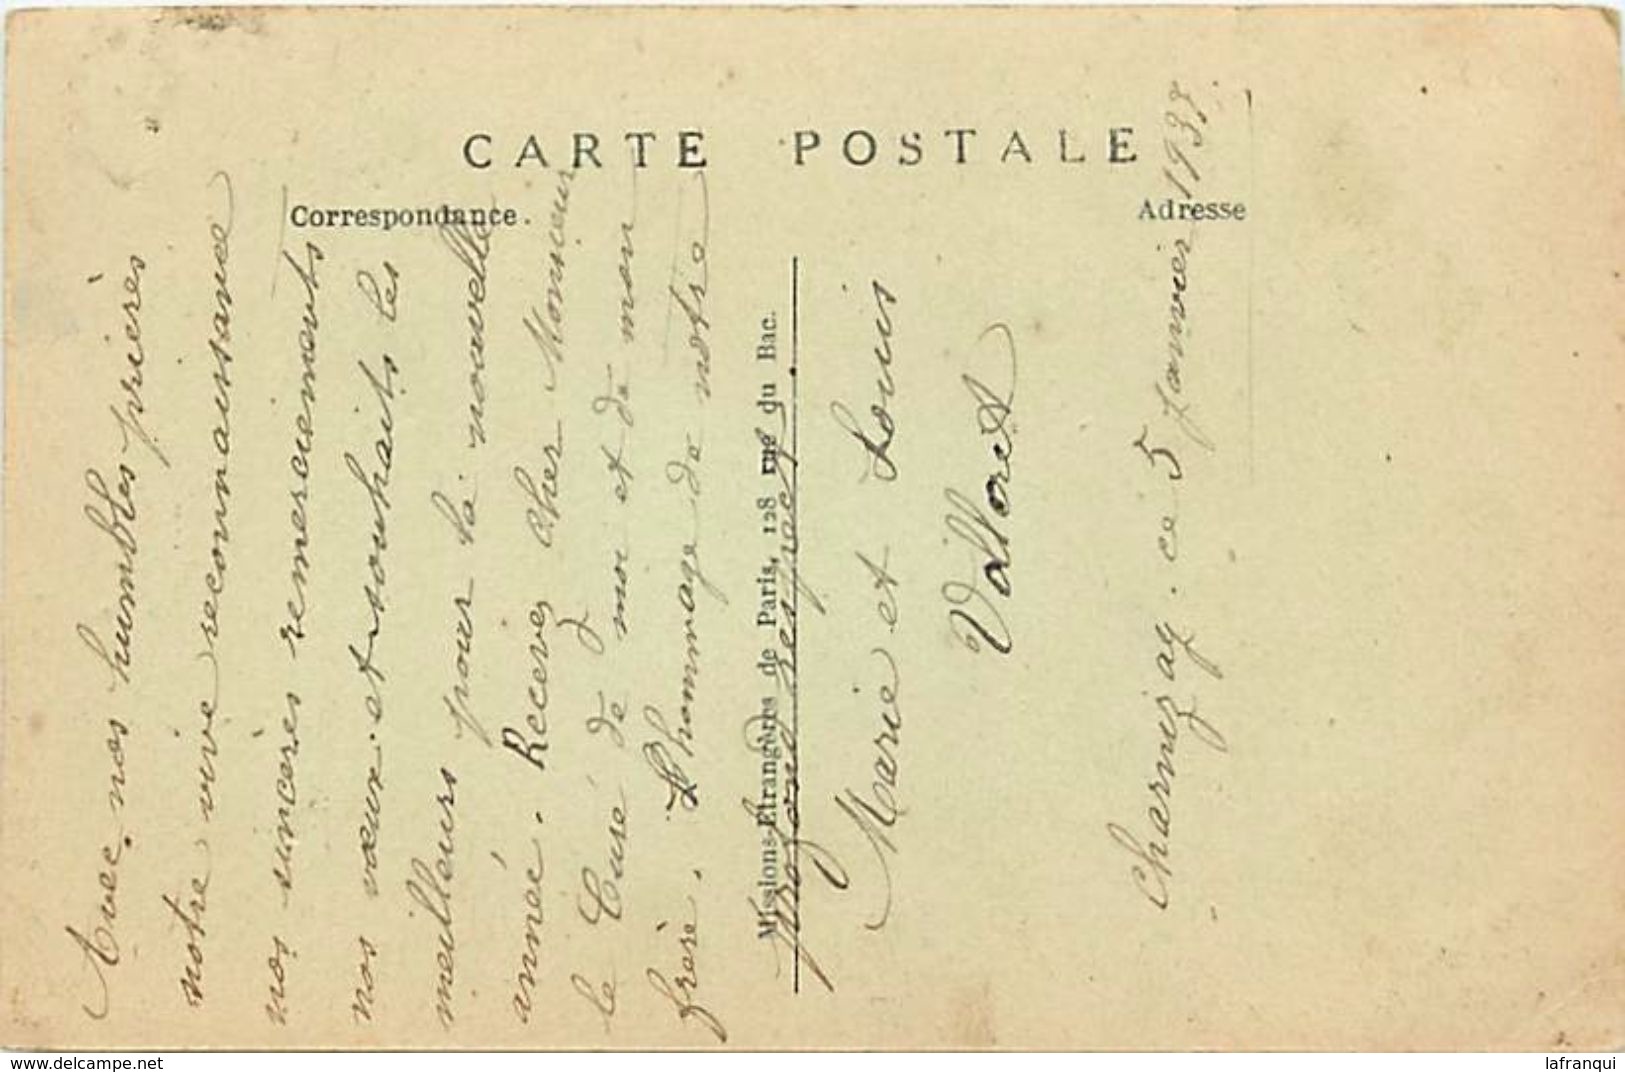 CARTE POSTALE
Correspondance.
Adresse
Missions-Etrangères de Paris, 128 rue du Bac.
Avec nos humbles prières
notre vive reconnaissance
nos sincères remerciements
nos vœux et souhaits les
meilleurs pour la nouvelle
année. Recevez cher Monsieur
le Curé de moi et de mon
frère. L'hommage de notre
profond respect.
Marie et Louis
Charnizay. ce 5 janvier 1938
delcampe.net
lafranqui